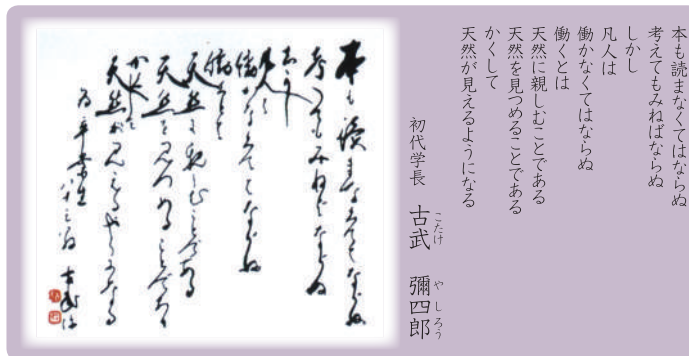 本も読まなくてはならぬ
考えてもみねばならぬ
しかし
凡人は
働かなくてはならぬ
働くとは
天然に親しむことである
天然を見つめることである
かくして
天然が見えるようになる
初代学長 古武 彌四郎
こたけ やしろう
本も讀まなくてはならぬ
考へてもみねばならぬ
しかし
凡人は
働かなくてはならぬ
働くとは
天然に親しむことである
天然を見つめることである
かくして
天然が見えるやうになる